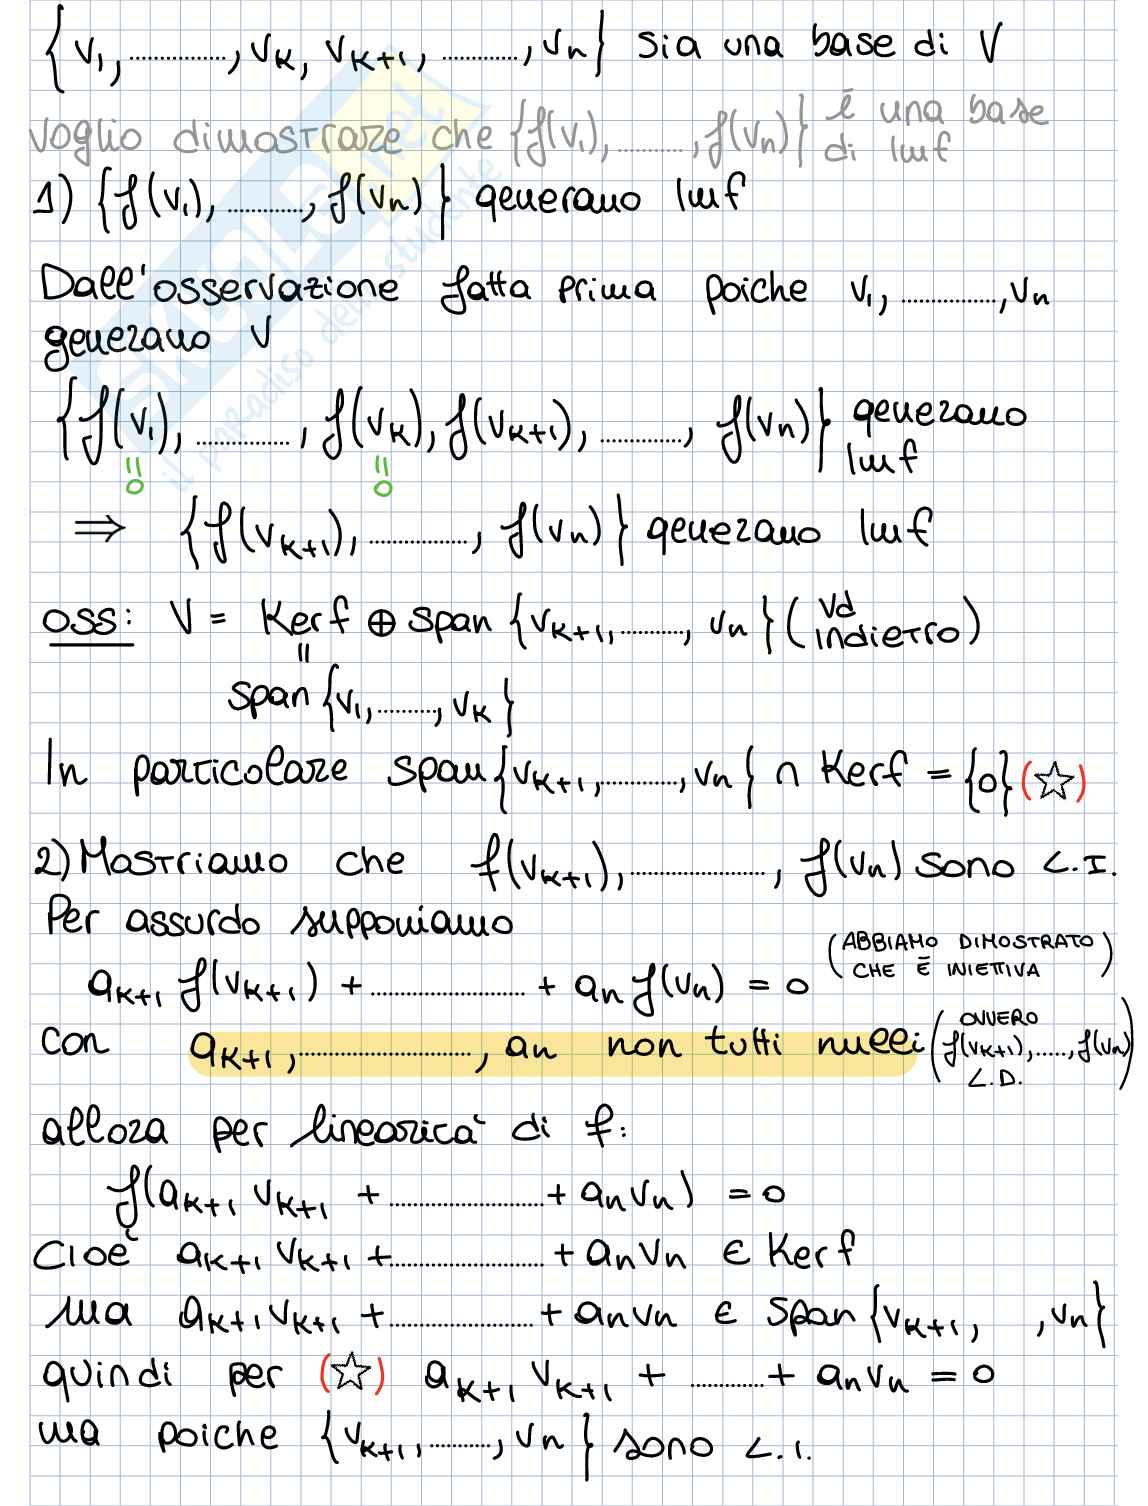 {v₁, ............, vₖ, vₖ₊₁, .........., vₙ} sia una base di V
voglio dimostrare che {f(v₁), .........., f(vₙ)} è una base di Imf
1) {f(v₁), .........., f(vₙ)} generano Imf
Dall'osservazione fatta prima poiche v₁, ............, vₙ
generano V
{f(v₁), ............, f(vₖ), f(vₖ₊₁), .........., f(vₙ)} generano Imf
= 0 = 0
⇒ {f(vₖ₊₁), ............, f(vₙ)} generano Imf
oss: V = Kerf ⊕ span {vₖ₊₁, ........, vₙ} (vd indietro)
=
span {v₁, ........, vₖ}
In particolare span{vₖ₊₁, .........., vₙ} ∩ Kerf = {0} (☆)
2) Mostriamo che f(vₖ₊₁), .................., f(vₙ) sono L.I.
Per assurdo supponiamo
aₖ₊₁ f(vₖ₊₁) + .................... + aₙ f(vₙ) = 0 (ABBIAMO DIMOSTRATO CHE È INIETTIVA)
con aₖ₊₁, ......................, aₙ non tutti nulli (OVVERO f(vₖ₊₁), ....., f(vₙ) L.D.)
allora per linearità di f:
f(aₖ₊₁ vₖ₊₁ + .................... + aₙvₙ) = 0
Cioè aₖ₊₁ vₖ₊₁ + .................... + aₙvₙ ∈ Kerf
ma aₖ₊₁vₖ₊₁ + .................. + aₙvₙ ∈ span {vₖ₊₁, , vₙ}
quindi per (☆) aₖ₊₁ vₖ₊₁ + .......... + aₙvₙ = 0
ma poiche {vₖ₊₁, ........, vₙ} sono L.I.
SKUOLA.net
il paradiso dello studente